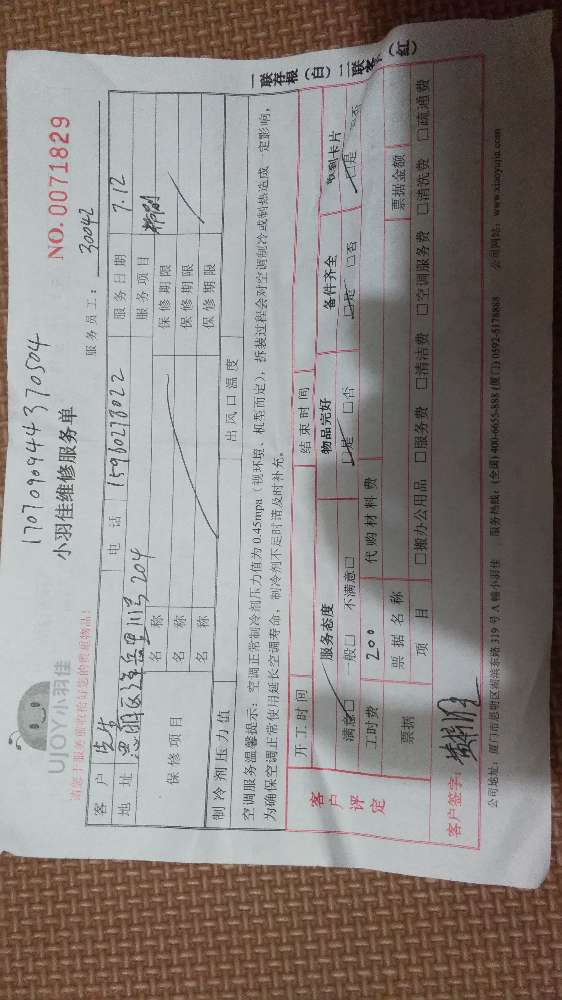 17070944370504
UJOY小羽佳
小羽佳维修服务单
NO.0071829
请您于服务前收拾好您的贵重物品!
服务员工: 30042
客户 电话 15960278022 服务日期 7.12
地址 思明区 204 服务项目
保修项目 名称 保修期限
名称 保修期限
名称 保修期限
制冷剂压力值 出风口温度
空调服务温馨提示:空调正常制冷剂压力值为0.45mpa(视环境、机型而定),拆装过程会对空调制冷或制热造成一定影响,
为确保空调正常使用延长空调寿命,制冷剂不足时请及时补充。
一联存根(白) 二联客(红)
客户评定
开工时间 结束时间
服务态度 物品完好 备件齐全 收到卡片
满意□ 一般□ 不满意□ □是 □否 □是 □否 □是 □否
工时费 200 代购材料费
票据 票据名称 票据金额
项目 □搬办公用品 □服务费 □清洁费 □空调服务费 □清洗费 □疏通费
客户签字:
公司地址:厦门市思明区湖滨东路319号A幢小羽佳 服务热线:(全国)400-6655-888 (厦门)0592-5178888 公司网站:www.xiaoyujia.com